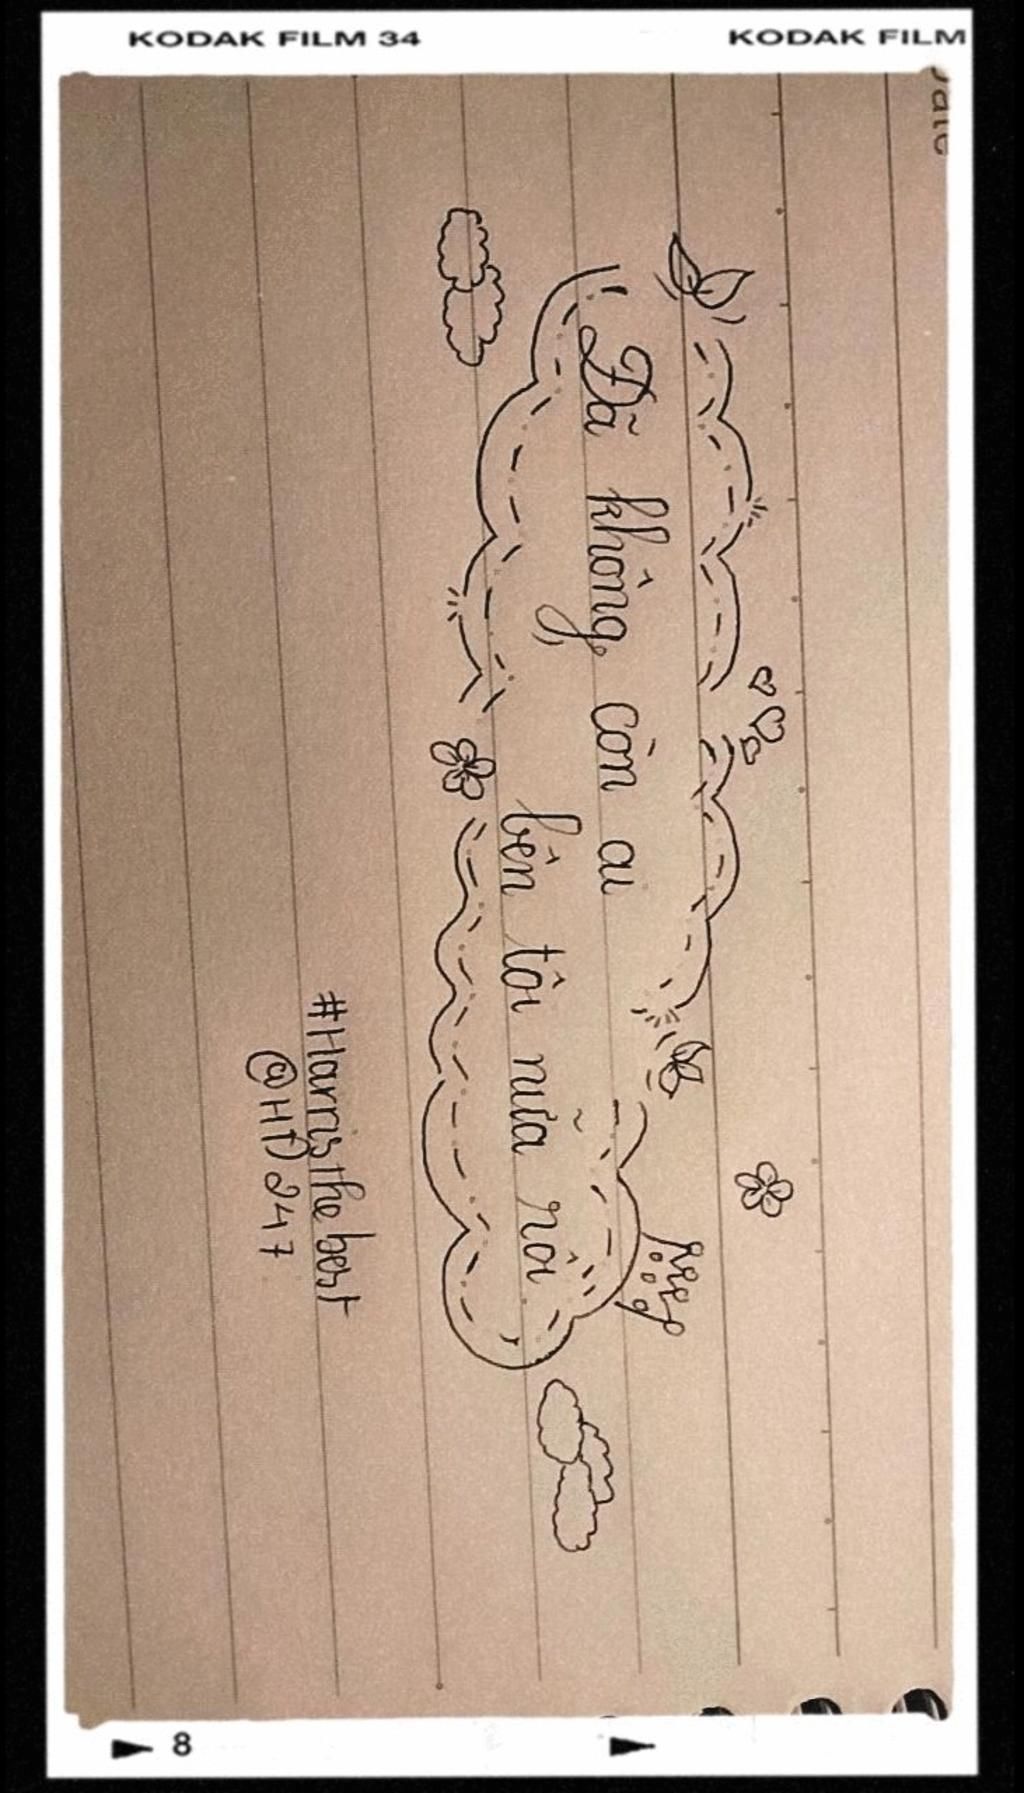 KODAK FILM 34
KODAK FILM
Đã không còn ai
bên tôi nữa rồi
#Harris the best
@HD247
8